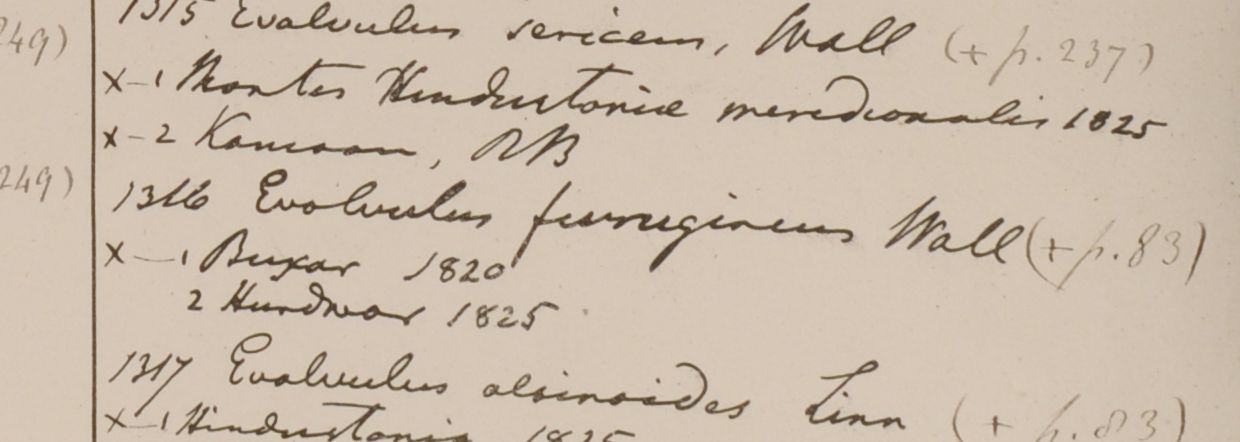 249)
1315 Evolvulus sericeus, Wall (+ p. 237)
x-1 Montes Hindustoniæ meridionalis 1825
x-2 Kamaon, RB
249)
1316 Evolvulus ferrugineus Wall (+ p. 83)
x-1 Buxar 1820
2 Hurdwar 1825
1317 Evolvulus alsinoides Linn (+ p. 83)
x-1 Hindustania 1825